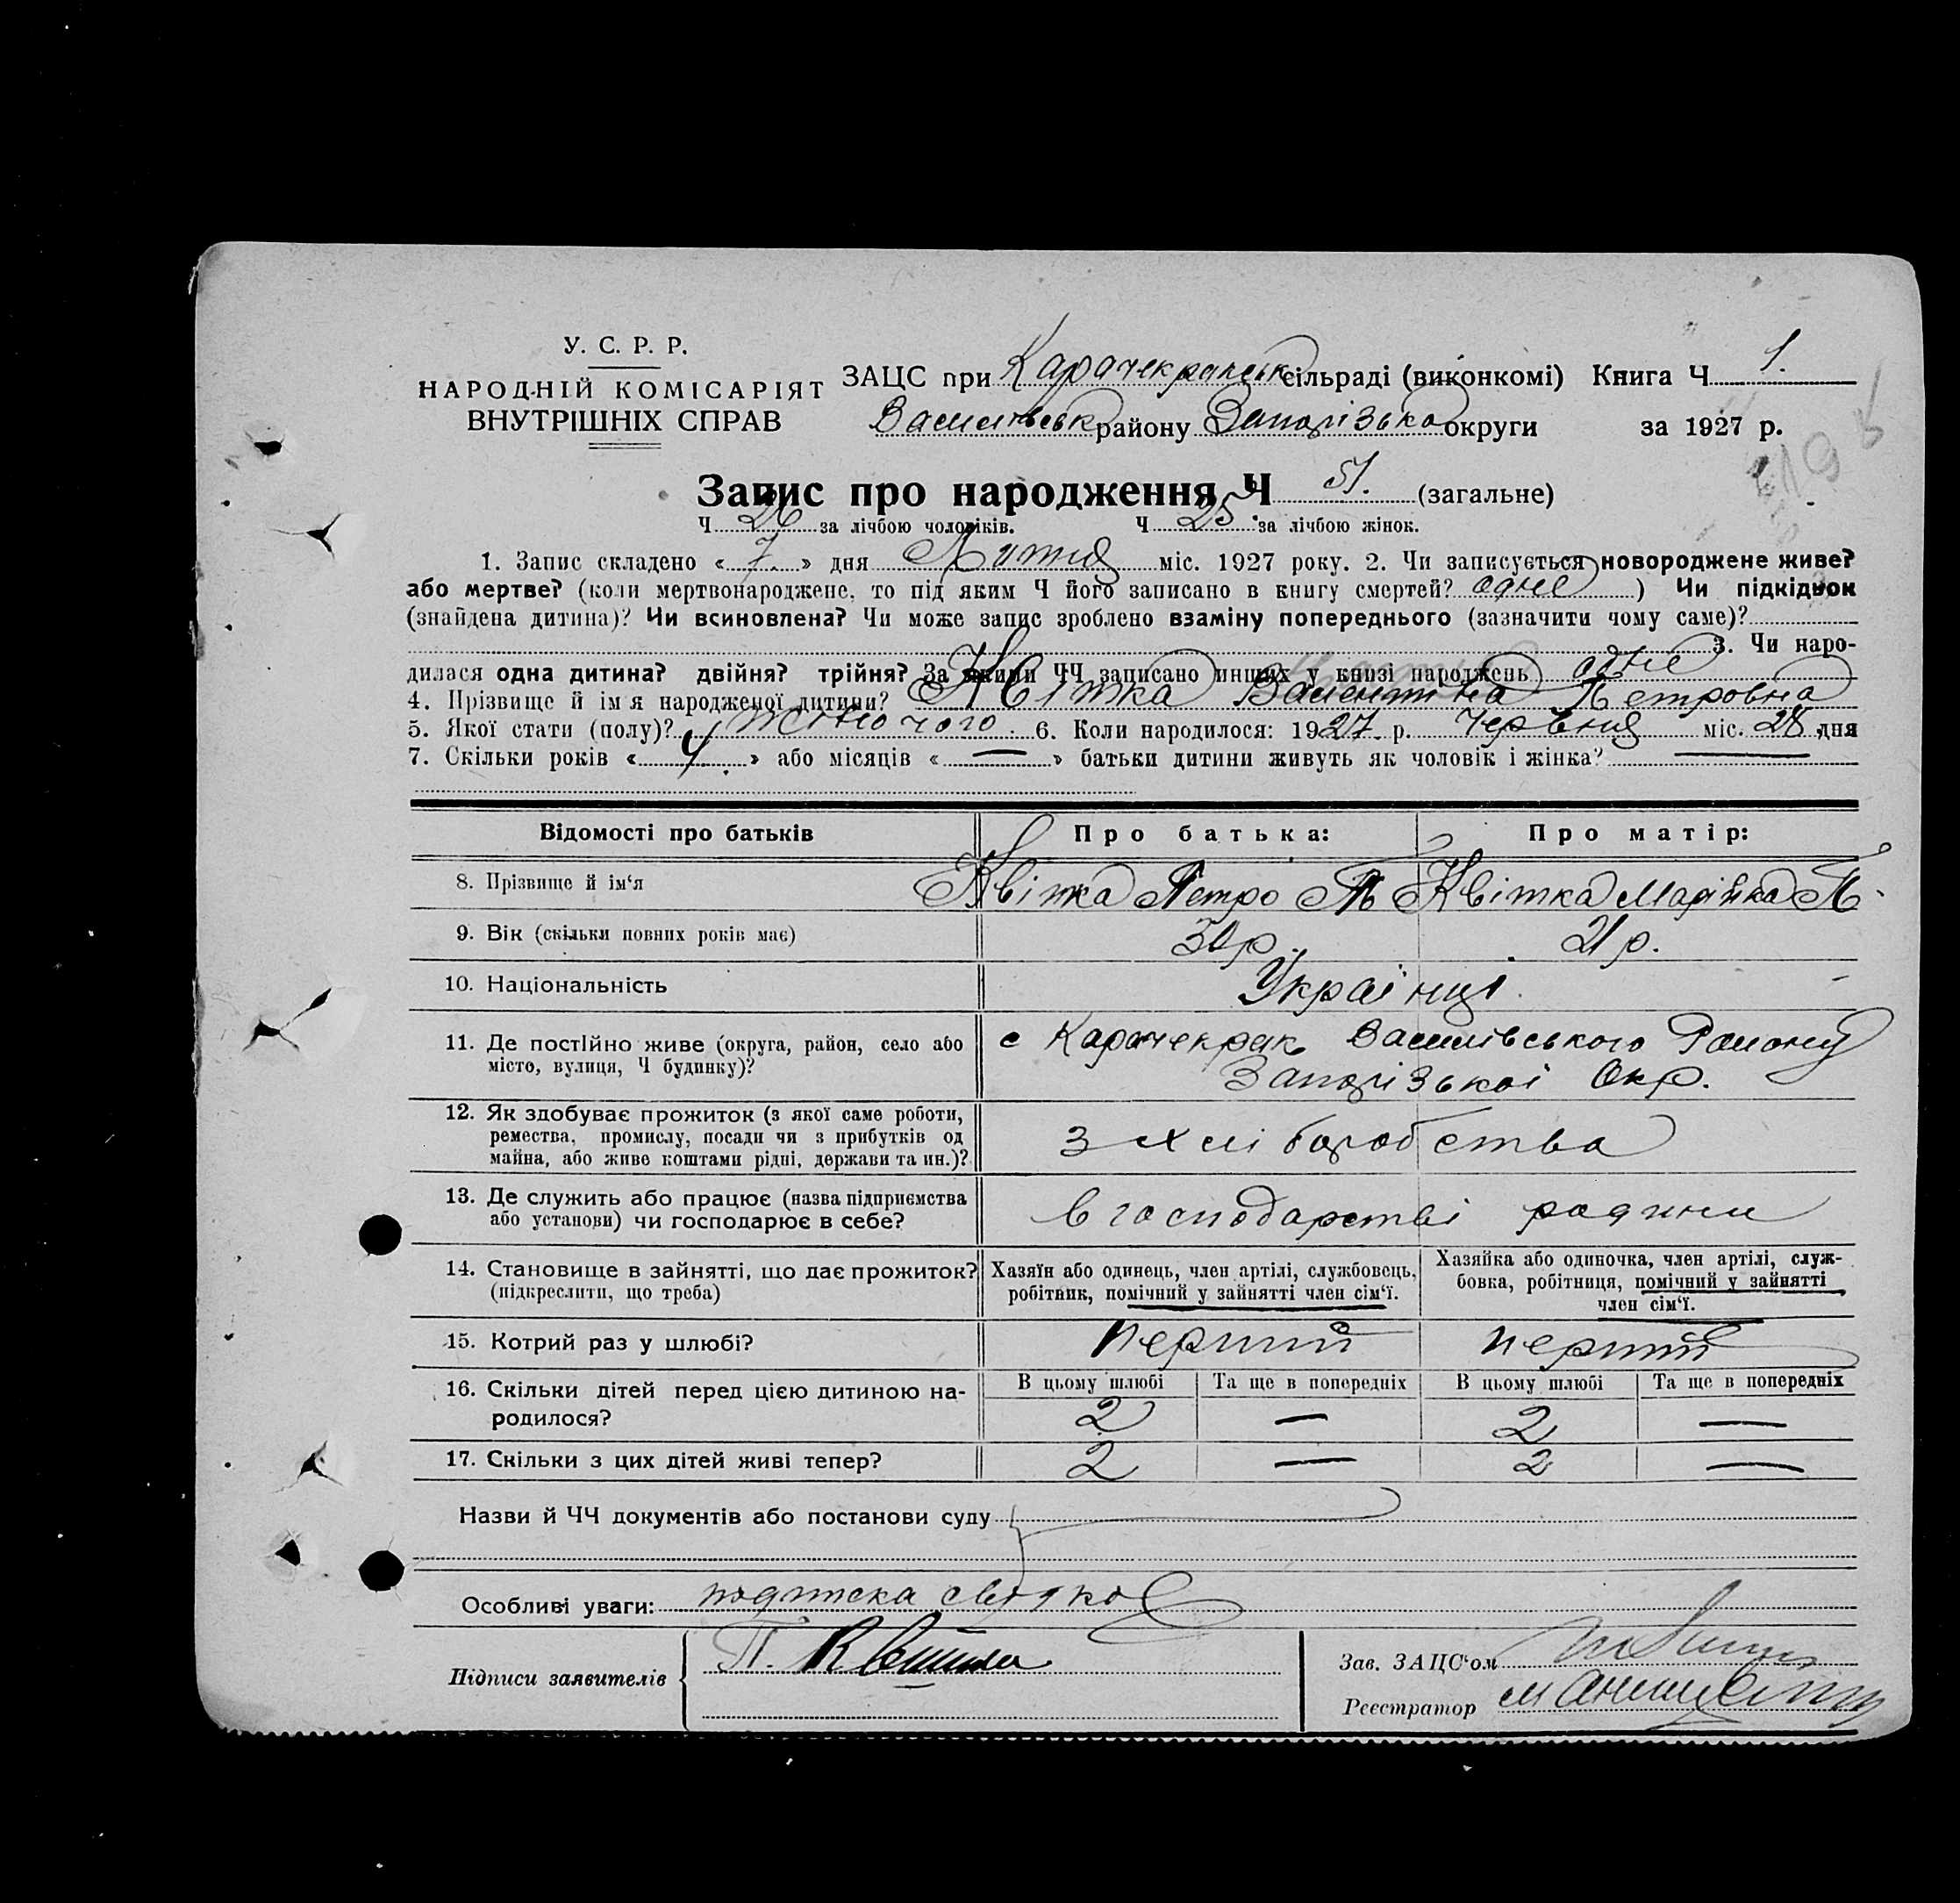 У. С. Р. Р.
НАРОДНІЙ КОМІСАРІЯТ
ВНУТРІШНІХ СПРАВ
ЗАЦС при Карачекрапськ сільраді (виконкомі) Книга Ч 1.
Василівськ району Запорізької округи за 1927 р.
Запис про народження Ч 51. (загальне)
Ч 26 за лічбою чоловіків. Ч 25 за лічбою жінок.
1. Запис складено « 7. » дня Липня міс. 1927 року. 2. Чи записується новороджене живе?
або мертве? (коли мертвонароджене, то під яким Ч його записано в книгу смертей? одне ) Чи підкідьок
(знайдена дитина)? Чи всиновлена? Чи може запис зроблено взаміну попереднього (зазначити чому саме)?
3. Чи наро-
дилася одна дитина? двійня? трійня? За якими ЧЧ записано инших у книзі народжень) одне
4. Прізвище й ім'я народженої дитини? Квітка Валентина Петровна
5. Якої стати (полу)? жіночого. 6. Коли народилося: 1927. р. Червня міс. 28 дня
7. Скільки років « 4. » або місяців « — » батьки дитини живуть як чоловік і жінка? —
Відомості про батьків Про батька: Про матір:
8. Прізвище й ім'я Квітка Петро П Квітка Марійка П.
9. Вік (скільки повних років має) 30 р. 21 р.
10. Національність Українці.
11. Де постійно живе (округа, район, село або місто, вулиця, Ч будинку)? с Карачекрак Василівського Району
Запорізької Окр.
12. Як здобуває прожиток (з якої саме роботи,
ремества, промислу, посади чи з прибутків од
майна, або живе коштами рідні, держави та ин.)? з хліборобства
13. Де служить або працює (назва підприємства
або установи) чи господарює в себе? в господарстві родини
14. Становище в зайнятті, що дає прожиток?
(підкреслити, що треба)
Хазяїн або одинець, член артілі, службовець,
робітник, помічний у зайнятті член сім'ї.
Хазяйка або одиночка, член артілі, служ-
бовка, робітниця, помічний у зайнятті
член сім'ї.
15. Котрий раз у шлюбі? перший перший
16. Скільки дітей перед цією дитиною на-
родилося?
В цьому шлюбі Та ще в попередніх В цьому шлюбі Та ще в попередніх
2 — 2 —
17. Скільки з цих дітей живі тепер? 2 — 2 —
Назви й ЧЧ документів або постанови суду
Особливі уваги: подписка свідков
Підписи заявителів П. Квитка
Зав. ЗАЦС'ом
Реєстратор